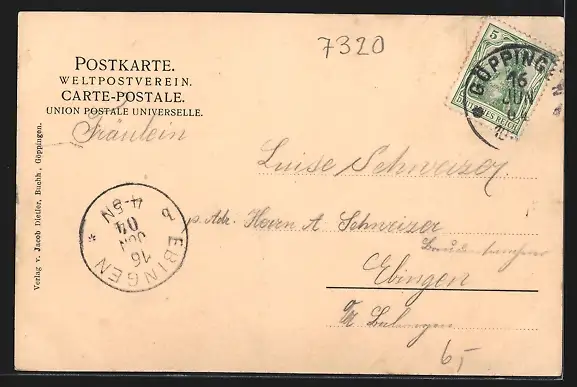 7320
POSTKARTE.
WELTPOSTVEREIN.
CARTE-POSTALE.
UNION POSTALE UNIVERSELLE.
5
DEUTSCHES REICH
GÖPPINGEN
16
JUN
04
Fräulein
Luise Schweizer.
p. Adr. Herrn A. Schweizer
Ebingen
EBINGEN
16
JUN
04
4-5N
Verlag v. Jacob Dietler, Buchh., Göppingen.